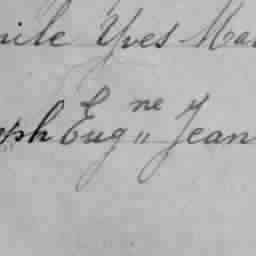 mile Yves Ma
eph Eug ne Jean